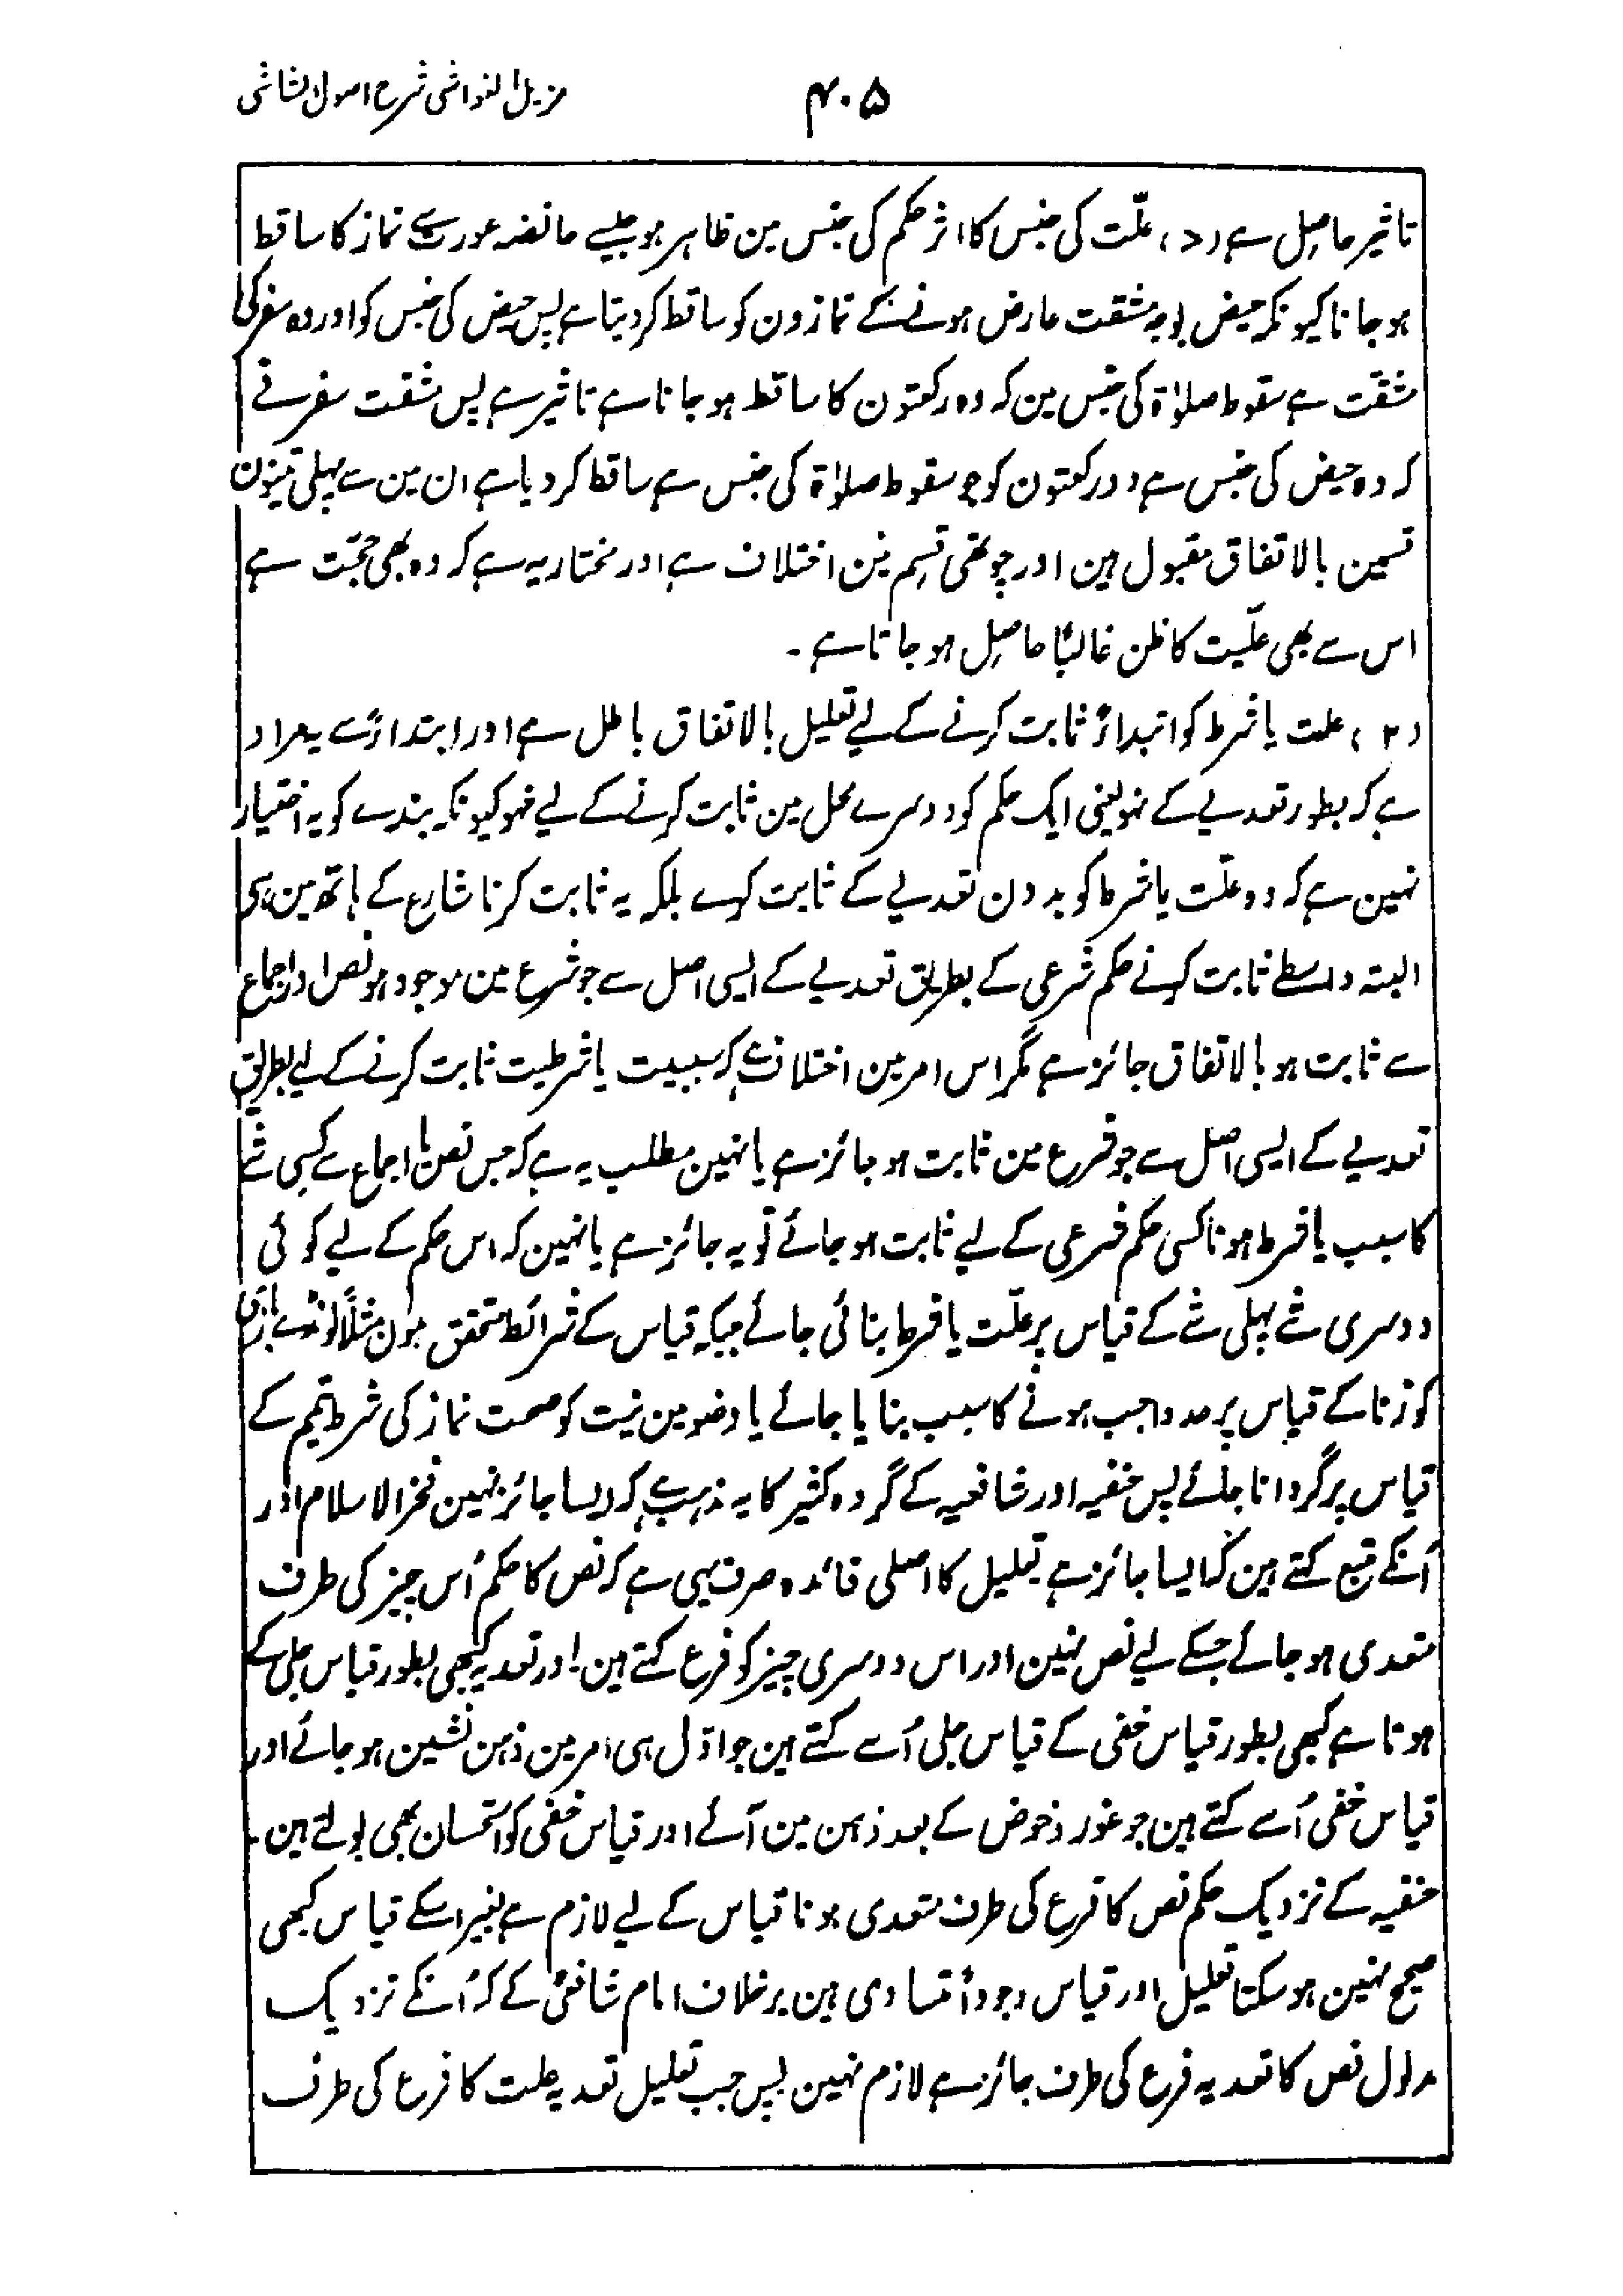 ۴۰۵
مزیل الغواشی شرح اصول الشاشی
تاثیر حاصل ہے (د) علّت کی جنس کا اثر حکم کی جنس مین ظاہر ہو جیسے حائضہ عورت سے نماز کا ساقط
ہو جانا کیونکہ حیض بوجہ مشقت عارض ہونے کے نمازون کو ساقط کر دیتا ہے پس حیض کی جنس کو اور وہ سفر کی
مشقت ہے سقوط صلوٰۃ کی جنس مین کہ دو رکعتون کا ساقط ہو جانا ہے تاثیر ہے پس مشقت سفر نے
کہ وہ حیض کی جنس ہے دو رکعتون کو جو سقوط صلوٰۃ کی جنس سے ساقط کر دیا ہے ان مین سے پہلی تینون
قسمین بالاتفاق مقبول ہین اور چوتھی قسم مین اختلاف ہے اور مختار یہ ہے کہ وہ بھی حجّت ہے
اس سے بھی علّیت کا ظن غالبًا حاصل ہو جاتا ہے ۔
(۲) علت یا شرط کو ابتداءً ثابت کرنے کے لیے تعلیل بالاتفاق باطل ہے اور ابتداءً سے یہ مراد
ہے کہ بطور تعدیے کے نہو یعنی ایک حکم کو دوسرے محل مین ثابت کرنے کے لیے نہو کیونکہ بندے کو یہ اختیار
نہین ہے کہ وہ علّت یا شرط کو بدون تعدیے کے ثابت کرے بلکہ یہ ثابت کرنا شارع کے ہاتھ مین ہی
البتہ واسطے ثابت کرنے حکم شرعی کے بطریق تعدیے کے ایسی اصل سے جو شرع مین موجود ہو نص اور اجماع
سے ثابت ہو بالاتفاق جائز ہے مگر اس امر مین اختلاف ہے کہ سببیت یا شرطیت ثابت کرنے کے لیے بطریق
تعدیے کے ایسی اصل سے جو فرع مین ثابت ہو جائز ہے یا نہین مطلب یہ ہے کہ جس نص یا اجماع سے کسی شے
کا سبب یا شرط ہونا کسی حکم شرعی کے لیے ثابت ہو جائے تو یہ جائز ہے یا نہین کہ اس حکم کے لیے کوئی
دوسری شے پہلی شے کے قیاس پر علّت یا شرط بنائی جائے جبکہ قیاس کے شرائط متحقق ہون مثلًا لونڈے بازی
کو زنا کے قیاس پر حد واجب ہونے کا سبب بنایا جائے یا وضو مین نیت کو صحت نماز کی شرط تیمم کے
قیاس پر گردانا جائے پس حنفیہ اور شافعیہ کے گروہ کثیر کا یہ مذہب ہے کہ ایسا جائز نہین فخر الاسلام اور
اُنکے متبع کہتے ہین کہ ایسا جائز ہے تعلیل کا اصلی فائدہ صرف یہی ہے کہ نص کا حکم اُس چیز کی طرف
متعدی ہو جائے جسکے لیے نص نہین اور اس دوسری چیز کو فرع کہتے ہین اور تعدیہ کبھی بطور قیاس جلی کے
ہوتا ہے کبھی بطور قیاس خفی کے قیاس جلی اُسے کہتے ہین جو اوّل ہی امر مین ذہن نشین ہو جائے اور
قیاس خفی اُسے کہتے ہین جو غور و خوض کے بعد ذہن مین آئے اور قیاس خفی کو استحسان بھی بولتے ہین ۔
حنفیہ کے نزدیک حکم نص کا فرع کی طرف متعدی ہونا قیاس کے لیے لازم ہے بغیر اسکے قیاس کبھی
صحیح نہین ہو سکتا تعلیل اور قیاس وجوداً متساوی ہین برخلاف امام شافعیؒ کے کہ اُنکے نزدیک
مدلول نص کا تعدیہ فرع کی طرف جائز ہے لازم نہین پس جب تعلیل تعدیہ علت کا فرع کی طرف